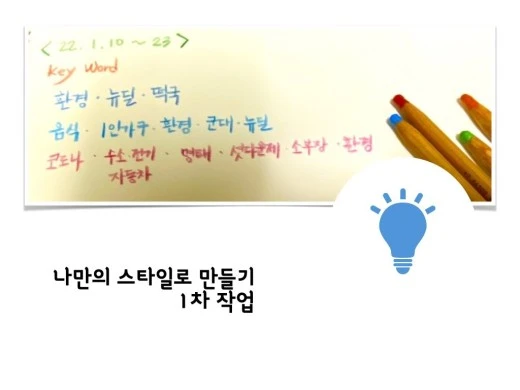 < 22. 1. 10 ~ 23 >
Key Word
환경 · 뉴딜 · 떡국
음식 · 1인가구 · 환경 · 군대 · 뉴딜
코로나 · 수소.전기 · 명태 · 셧다운제 · 소부장 · 환경
자동차
나만의 스타일로 만들기
1차 작업